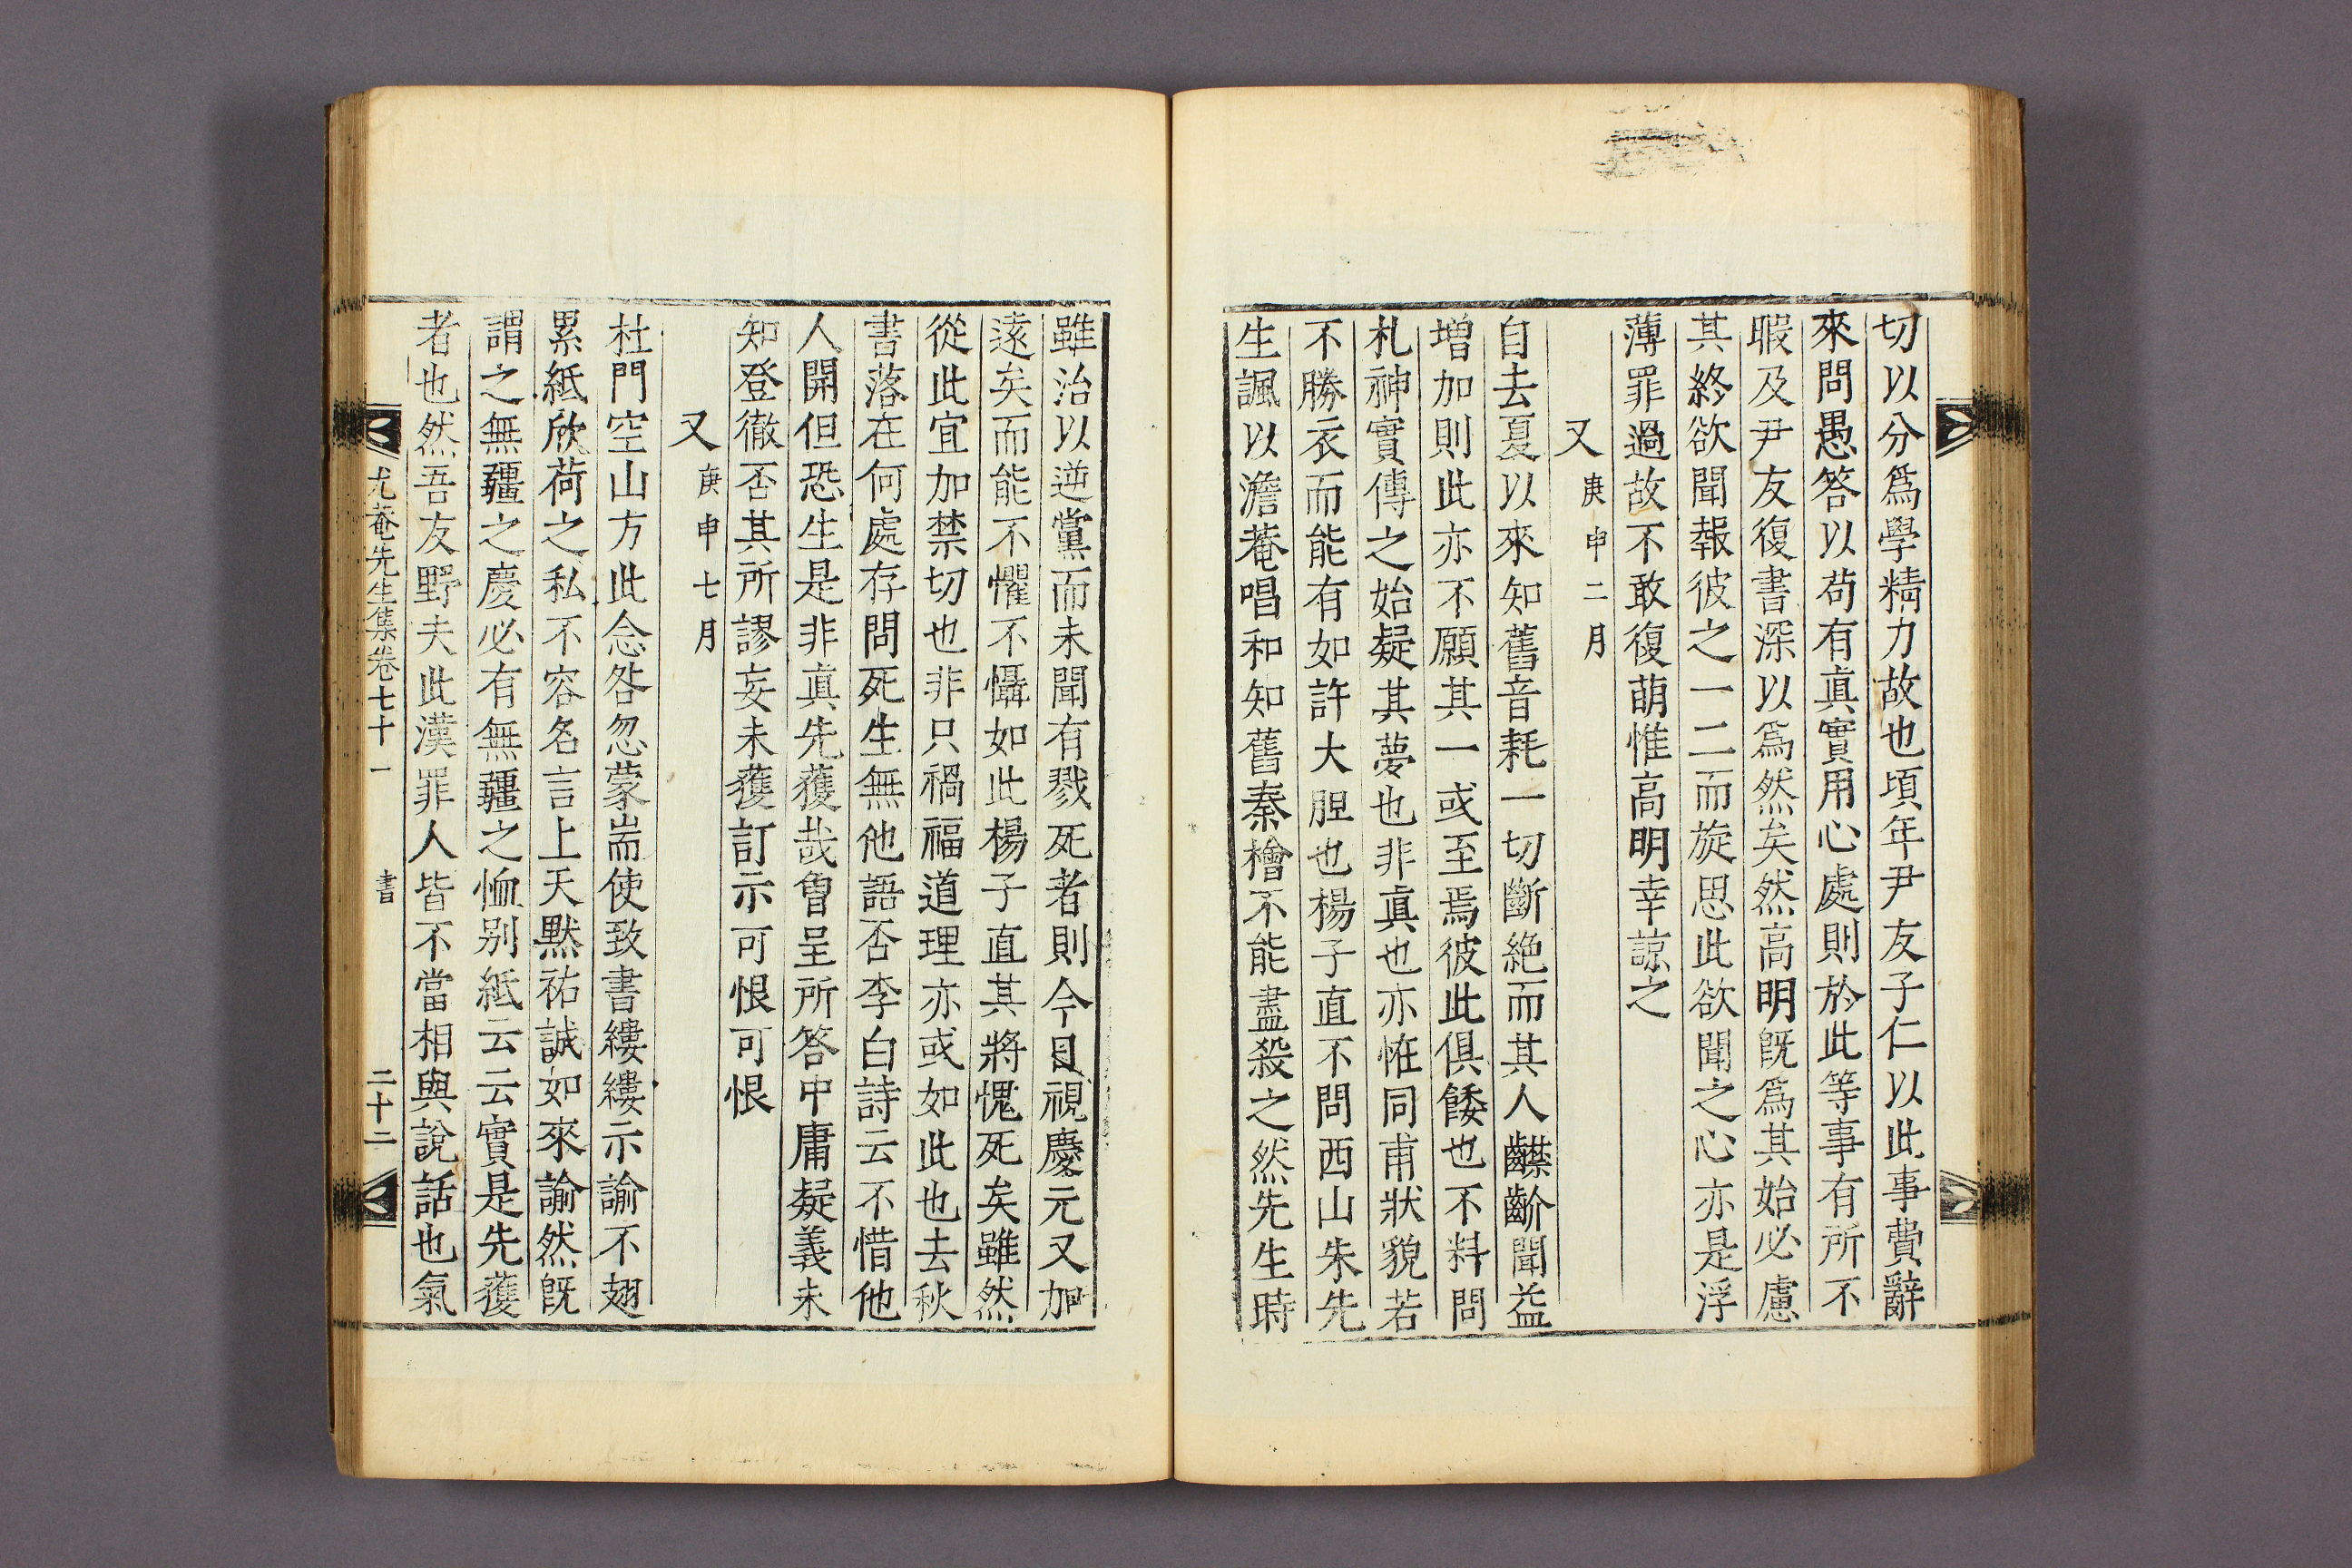 切以分爲學精力故也頃年尹友子仁以此事費辭
來問愚答以苟有眞實用心處則於此等事有所不
暇及尹友復書深以爲然矣然高明旣爲其始必慮
其終欲聞報彼之一二而旋思此欲聞之心亦是浮
薄罪過故不敢復萌惟高明幸諒之
又 庚申二月
自去夏以來知舊音耗一切斷絶而其人齽齘聞益
增加則此亦不願其一或至焉彼此俱餧也不料問
札神實傳之始疑其夢也非眞也亦恠同甫狀貌若
不勝衣而能有如許大胆也楊子直不問西山朱先
生諷以澹菴唱和知舊秦檜不能盡殺之然先生時
雖治以逆黨而未聞有戮死者則今日視慶元又加
遠矣而能不懼不懾如此楊子直其將愧死矣雖然
從此宜加禁切也非只禍福道理亦或如此也去秋
書落在何處存問死生無他語否李白詩云不惜他
人開但恐生是非眞先獲哉曾呈所答中庸疑義未
知登徹否其所謬妄未獲訂示可恨可恨
又 庚申七月
杜門空山方此念咎忽蒙耑使致書縷縷示諭不翅
累紙欣荷之私不容名言上天黙祐誠如來諭然旣
謂之無疆之慶必有無疆之恤别紙云云實是先獲
者也然吾友野夫此漢罪人皆不當相與說話也氣
尤菴先生集卷七十一 書 二十二